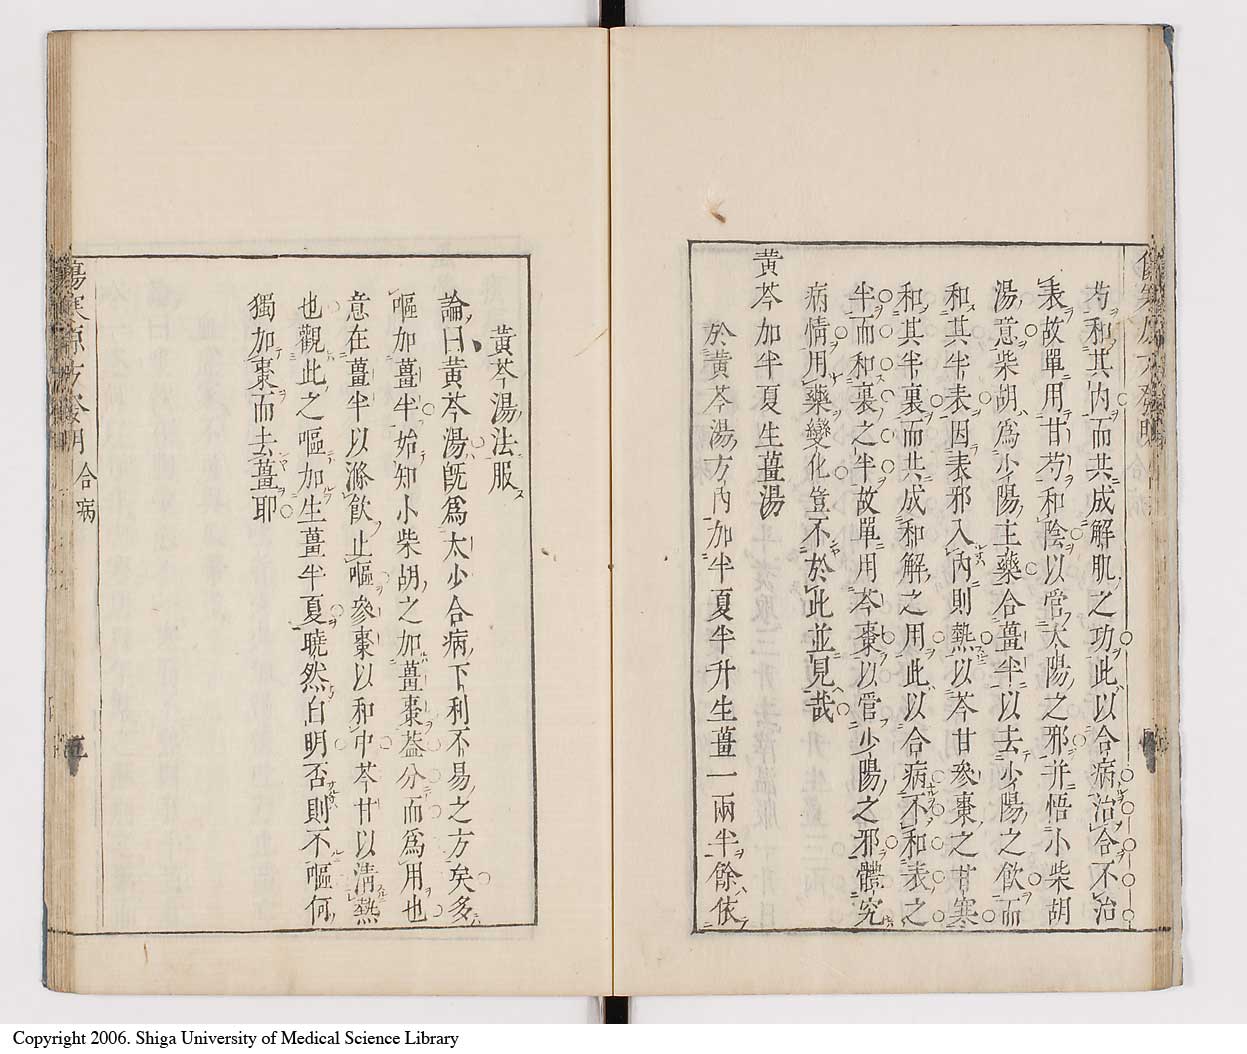 芍和其内而共成解肌之功此以合病治合不治
表故單用甘芍和陰以管太陽之邪并悟小柴胡
湯意柴胡爲少陽主藥合薑半以去少陽之飲而
和其半表因表邪入內則熱以芩甘參棗之甘寒
和其半裏而共成和解之用此以合病不和表之
半而和裏之半故單用芩棗以管少陽之邪體究
病情用藥變化豈不於此並見哉
黃芩加半夏生薑湯
於黃芩湯方內加半夏半升生薑一兩半餘依
黃芩湯法服
論曰黃芩湯既爲太少合病下利不易之方矣多
嘔加薑半始知小柴胡之加薑棗蓋分而爲用也
意在薑半以滌飲止嘔參棗以和中芩甘以清熱
也觀此之嘔加生薑半夏曉然自明否則不嘔何
獨加棗而去薑耶
合病
Copyright 2006. Shiga University of Medical Science Library